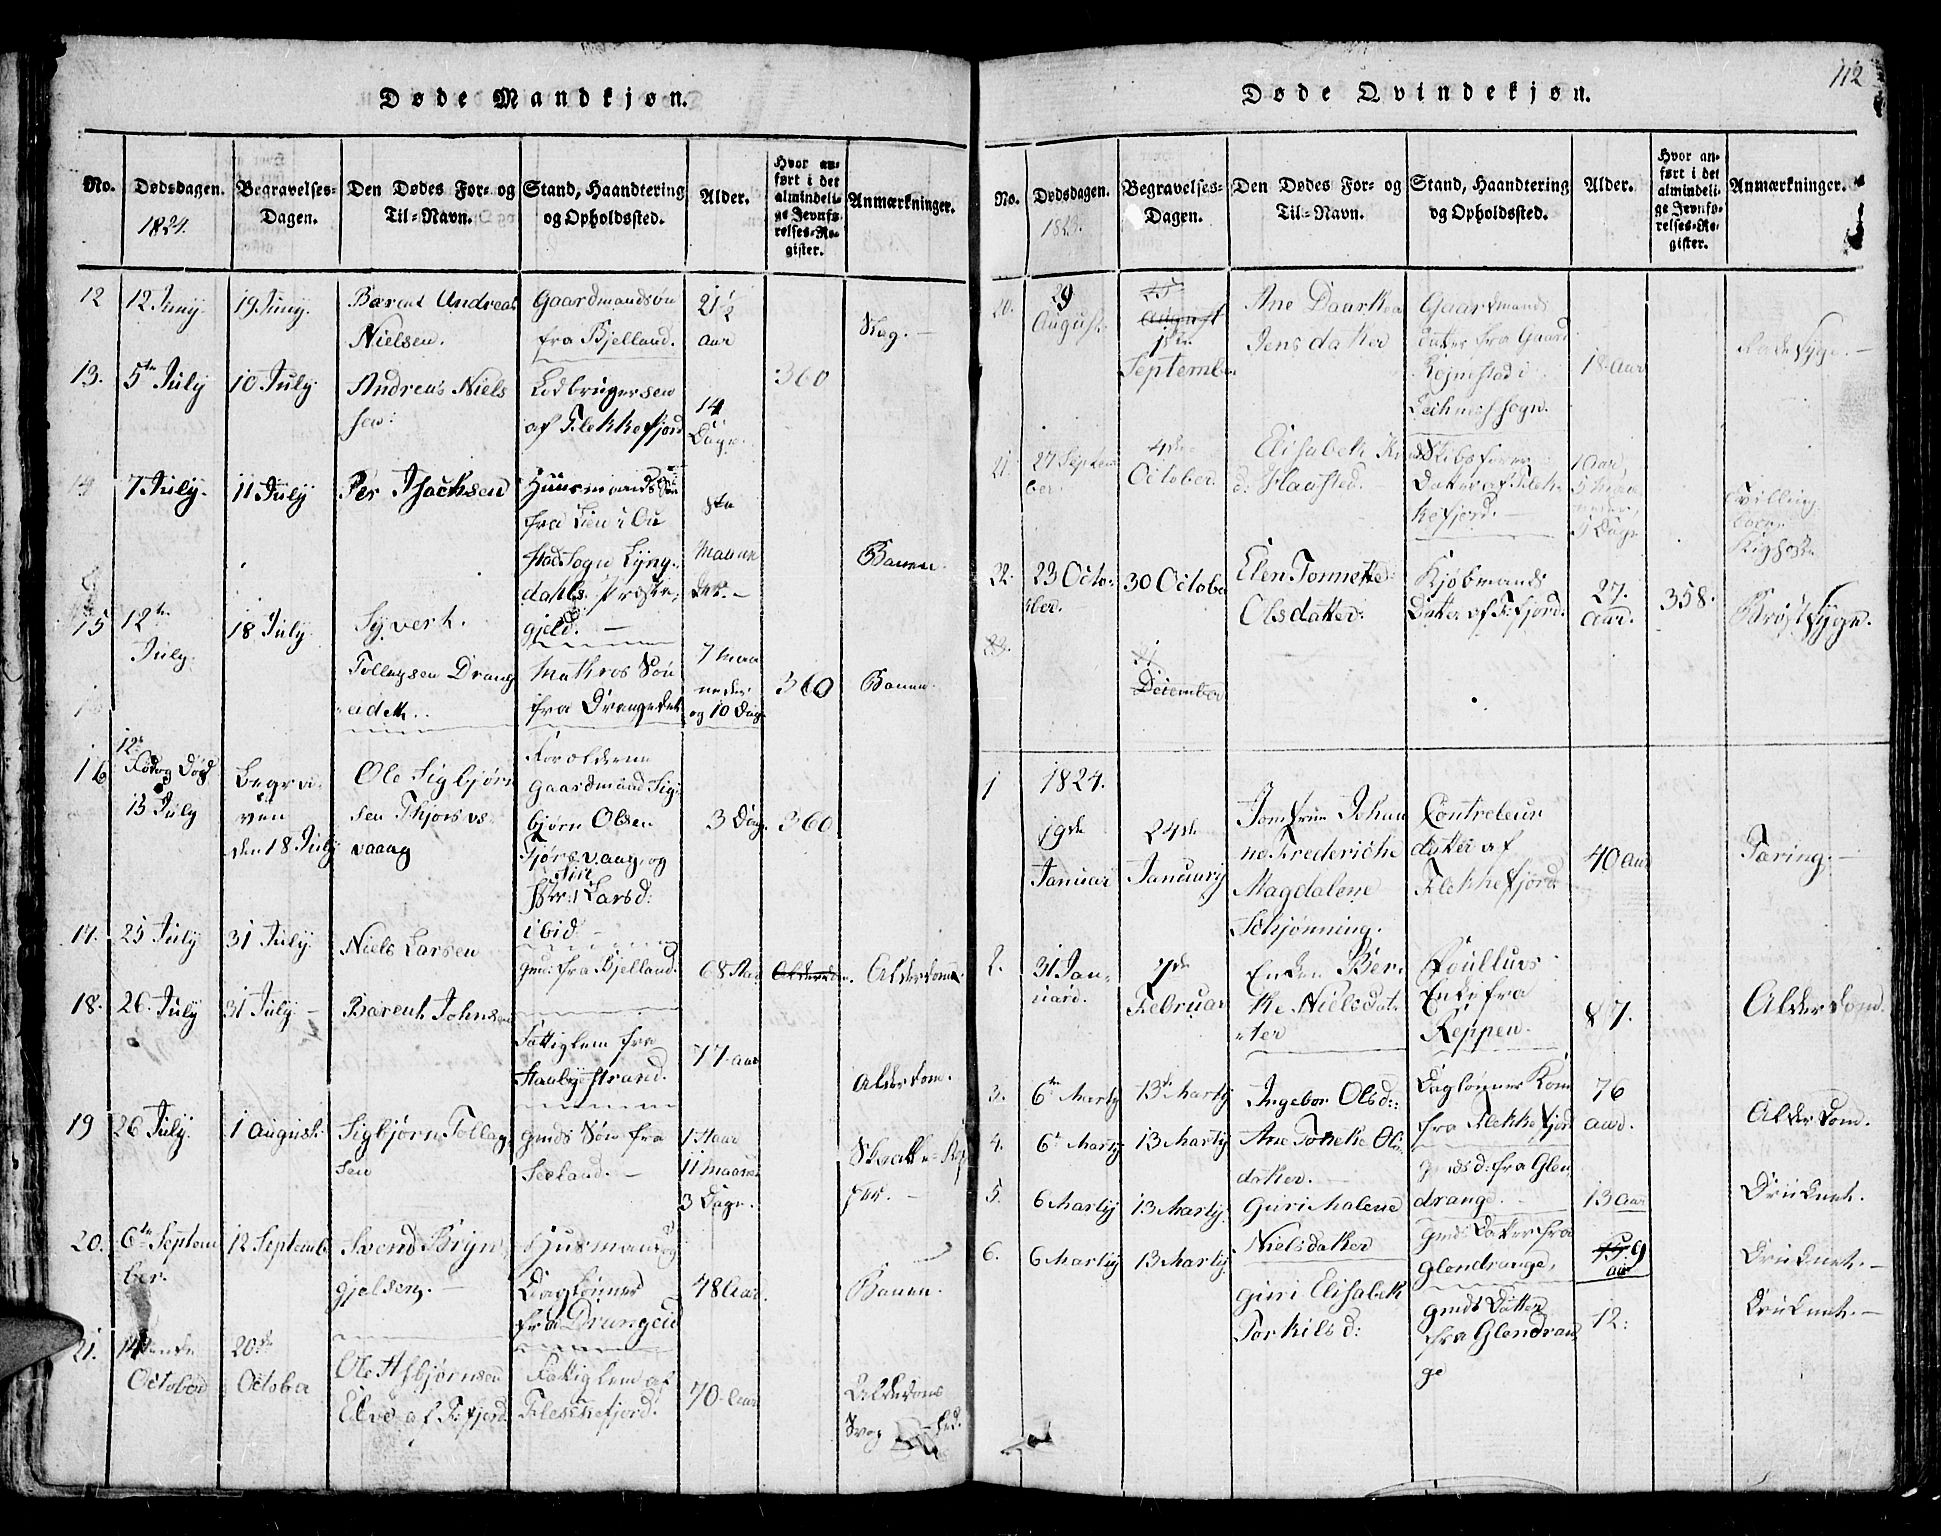 Døde Mandkjøn.
No.
Dødsdagen.
1824.
Begravelses-
Dagen.
Den Dødes For- og
Til-Navn.
Stand, Haandtering
og Opholdssted.
Alder.
Hvor an-
ført i det
almindeli-
ge Jevnfø-
relses-Re-
gister.
Anmærkninger.
12
12 Juny.
19 Juny.
Barent Andreas
Nielsen.
Gaardmandsøn
fra Bjelland.
21½
aar
13.
5te July
10 July.
Andreas Niels
sen.
af Flekkefjord
14
Dage.
360
14
7 July.
11 July
Per Isachsen
Huusmands Søn
fra Lien i
Sogn Lyng-
dahls Præste-
gjeld.
15
12te
July.
18 July
Syvert
Tollagsen Drang
eidet.
Matros Søn
fra Drangeidet
7 Maa
neder
og 10 Dage
360
16
12te
Fød og Død
13 July
Begra-
ven
den 18 July
Ole Sigbjørn
sen Thjorsvs-
vaag
Forældrene
Gaardmand Sig-
bjørn Olsen
Tjørsvaag, og
Larsd:
ibid
3 Dage
360
17.
25 July
31 July.
Niels Larsen
gmd: fra Bjelland.
68 Aar
Alderdom.
18.
26. July
31 July
Barent Johnsen
Fattiglem fra
strand.
77 aar
Alderdom.
19
26 July.
1 August.
Sigbjørn Tollag
sen
gmds Søn fra
Seeland.
1 Aar
11 Maaned
3 Dage.
20.
6te Septem
ber.
12 Septemb
Svend Bryn
gjelsen.
Huusmand og
Daglønner
fra Drangeid
48 Aar.
21.
October
20de
October
Ole Asbjørnsen
af F.fjord.
Fattiglem af
Flekkefjord.
70 Aar
Alderdoms
Døde Qvindekjøn.
112
No.
Dødsdagen.
1823.
Begravelses-
Dagen.
Den Dødes For- og
Til-Navn.
Stand, Haandtering
og Opholdssted.
Alder.
Hvor an-
ført i det
almindeli-
ge Jevnfø-
relses-Re-
gister.
Anmærkninger.
20.
29
August
August
1ste
September
Ane Daarthea
Jensdatter
Gaardmands
datter fra Gaard
i
Sogn.
18 Aar
21
27 Septem
ber.
4de
October.
Elisabeth
Skibsfører
Datter af Flek-
kefjord.
1 Aar,
5 Maa
neder,
4 Dage
Tvilling
22.
23 Octo-
ber.
30 October
Elen Tonnette
Olsdatter.
Kjøbmands
Datter af F.fjord.
27.
Aar.
358.
Brøstsyge.
23.
December
1
1824.
19de
Januar
24de
January
Jomfrue Johan
ne Frederiche
Magdalene
Schjønning.
Contreleur
datter af
Flekkefjord
40 Aar
Tæring.
2.
31 Jan-
uard.
7de
Februar
Enken Ber-
the Nielsdat-
ter
Enke fra
Reppen.
87.
Alderdom.
3.
6te Martij
13de Martij
Ingebor Olsd:
Daglønner Kone
fra Flekkefjord
76
aar.
Alderdom.
4.
6te Martij
13 Martij
Ane Ols
datter.
gmds d: fra Glen
drange.
13 Aar
Druknet.
5.
6 Martij
13 Martij.
Guri Malene
Nielsdatter
gmds Datter fra
Glendrange,
9
aar
Druknet.
6.
6 Martij
13 Martij.
Guri Elisabeth
Torkilsd:
gmds Datter
fra Glendran
ge
12:
Druknet.